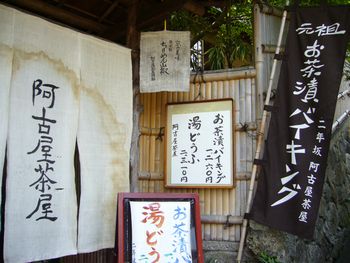 阿古屋茶屋
ちりめん山椒
お茶漬バイキング
一二六〇円
湯どうふ
二三一〇円
阿古屋茶屋
元祖
お茶漬バイキング
二年坂 阿古屋茶屋
お茶漬
湯どう